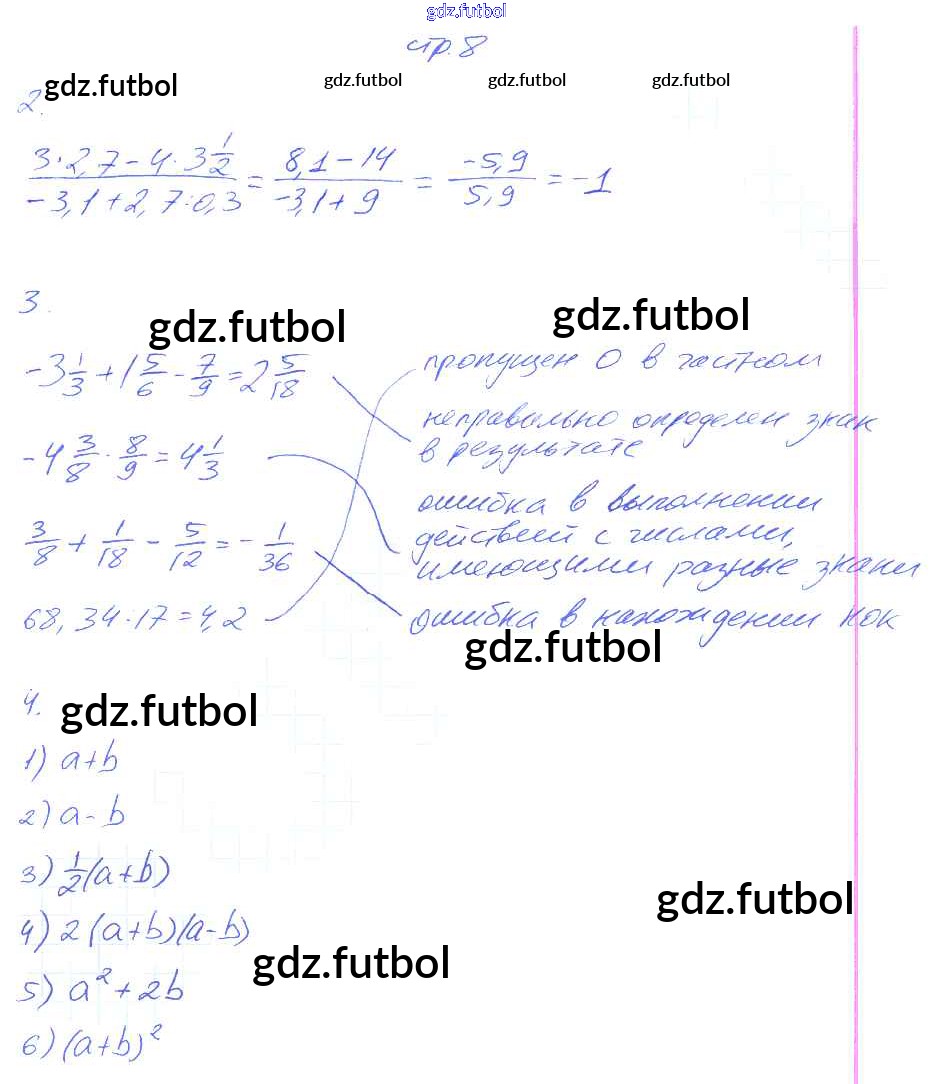 gdz.futbol
стр. 8
gdz.futbol gdz.futbol gdz.futbol gdz.futbol
2.
(3·2,7 - 4·3 1/2)/(-3,1 + 2,7:0,3) = (8,1 - 14)/(-3,1 + 9) = (-5,9)/(5,9) = -1
3.
gdz.futbol gdz.futbol
-3 1/3 + 1 5/6 - 7/9 = 2 5/18
пропущен 0 в частном
-4 3/8 · 8/9 = 4 1/3
неправильно определен знак
в результате
3/8 + 1/18 - 5/12 = - 1/36
ошибка в выполнении
действий с числами,
имеющими разные знаки
68,34:17 = 4,2
ошибка в нахождении НОК
gdz.futbol
4.
gdz.futbol
1) a+b
2) a-b
3) 1/2(a+b)
gdz.futbol
4) 2(a+b)(a-b)
gdz.futbol
5) a²+2b
6) (a+b)²